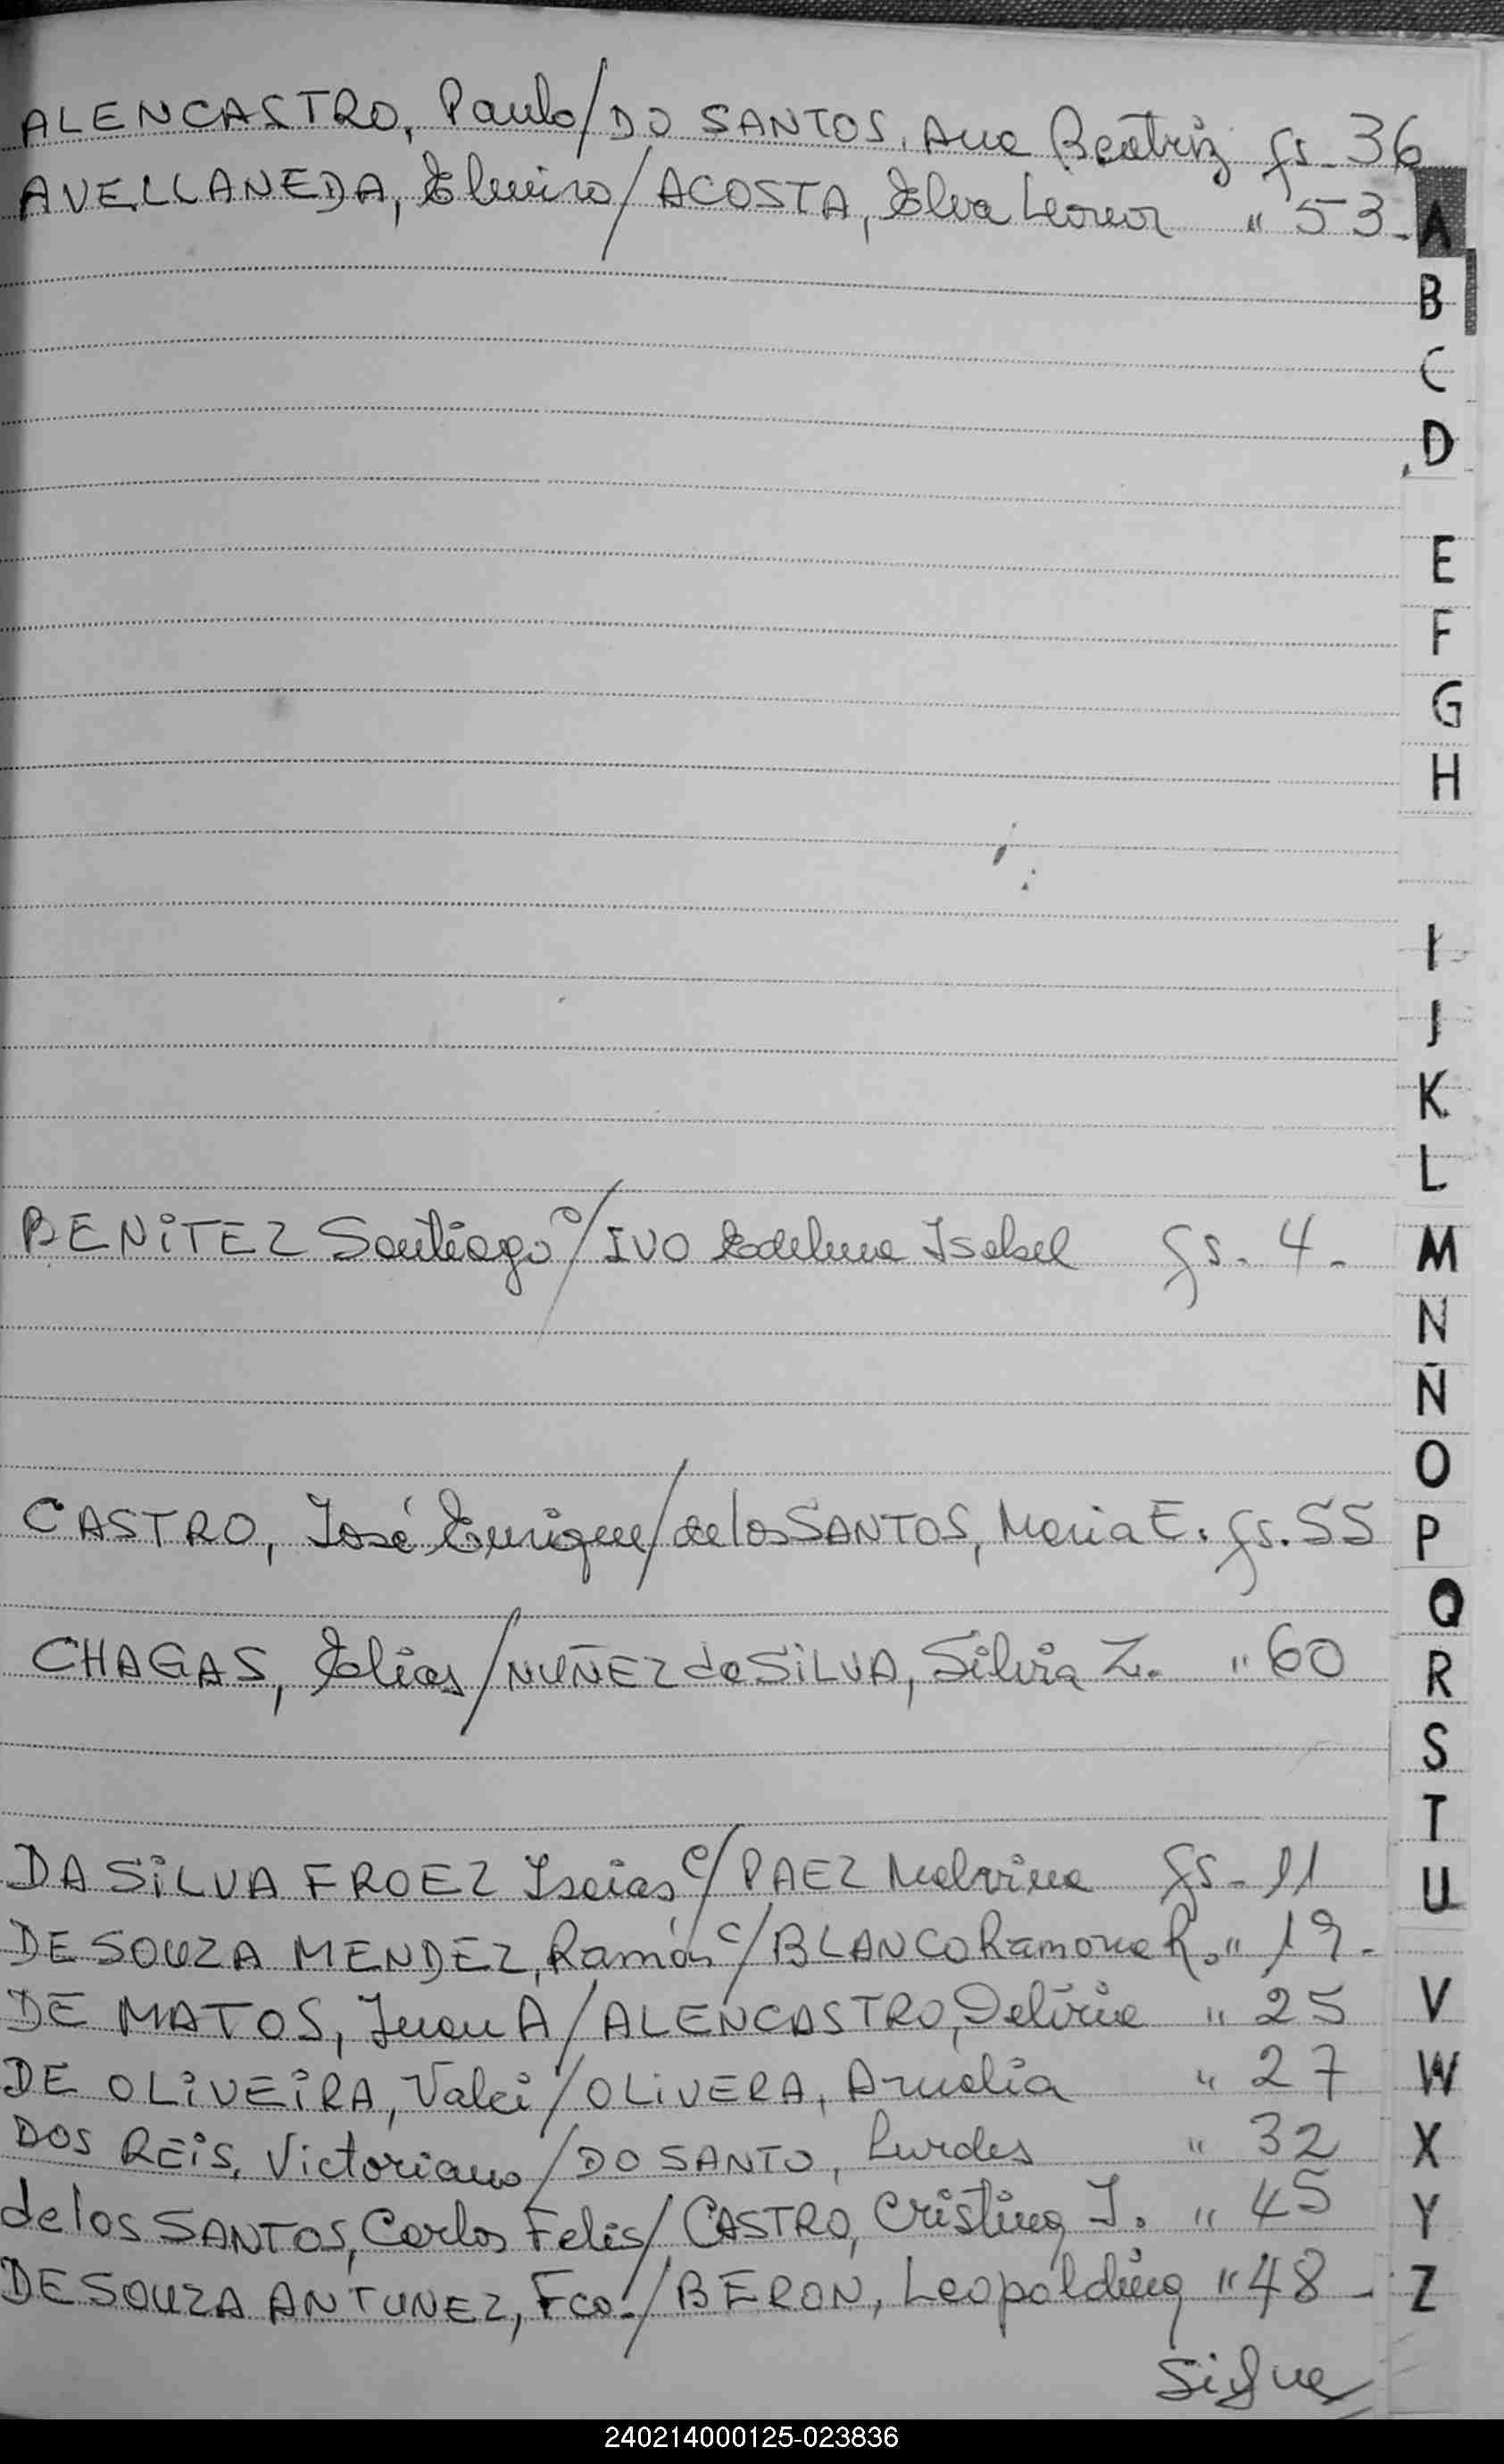 ALENCASTRO, Paulo/DO SANTOS, Ana Beatriz fs- 36
AVELLANEDA, Elmiro/ACOSTA, Elva Leonor " 53-
A
B
C
D
E
F
G
H
I
J
K
L
BENiTEZ Santiago c/IVO Edelma Isabel fs. 4-
M
N
Ñ
O
CASTRO, José Enrique/de los SANTOS, Maria E. fs. 55
P
Q
CHAGAS, Elias/NUÑEZ da SiLVA, Silvia Z. " 60
R
S
T
DA SiLVA FROEZ Isaias c/PAEZ Malvina fs- 11
U
DE SOUZA MENDEZ, Ramón c/BLANCO Ramona R. " 19-
DE MATOS, Juan A/ALENCASTRO, Deliria " 25
V
DE OLiVEiRA, Valci/OLiVERA, Amalia " 27
W
DOS REiS, Victoriano/DO SANTO, Lurdes " 32
X
de los SANTOS, Carlos Felis/CASTRO, Cristina I. " 45
Y
DE SOUZA ANTUNEZ, Fco./BERON, Leopoldina " 48-
Z
Sigue
240214000125-023836